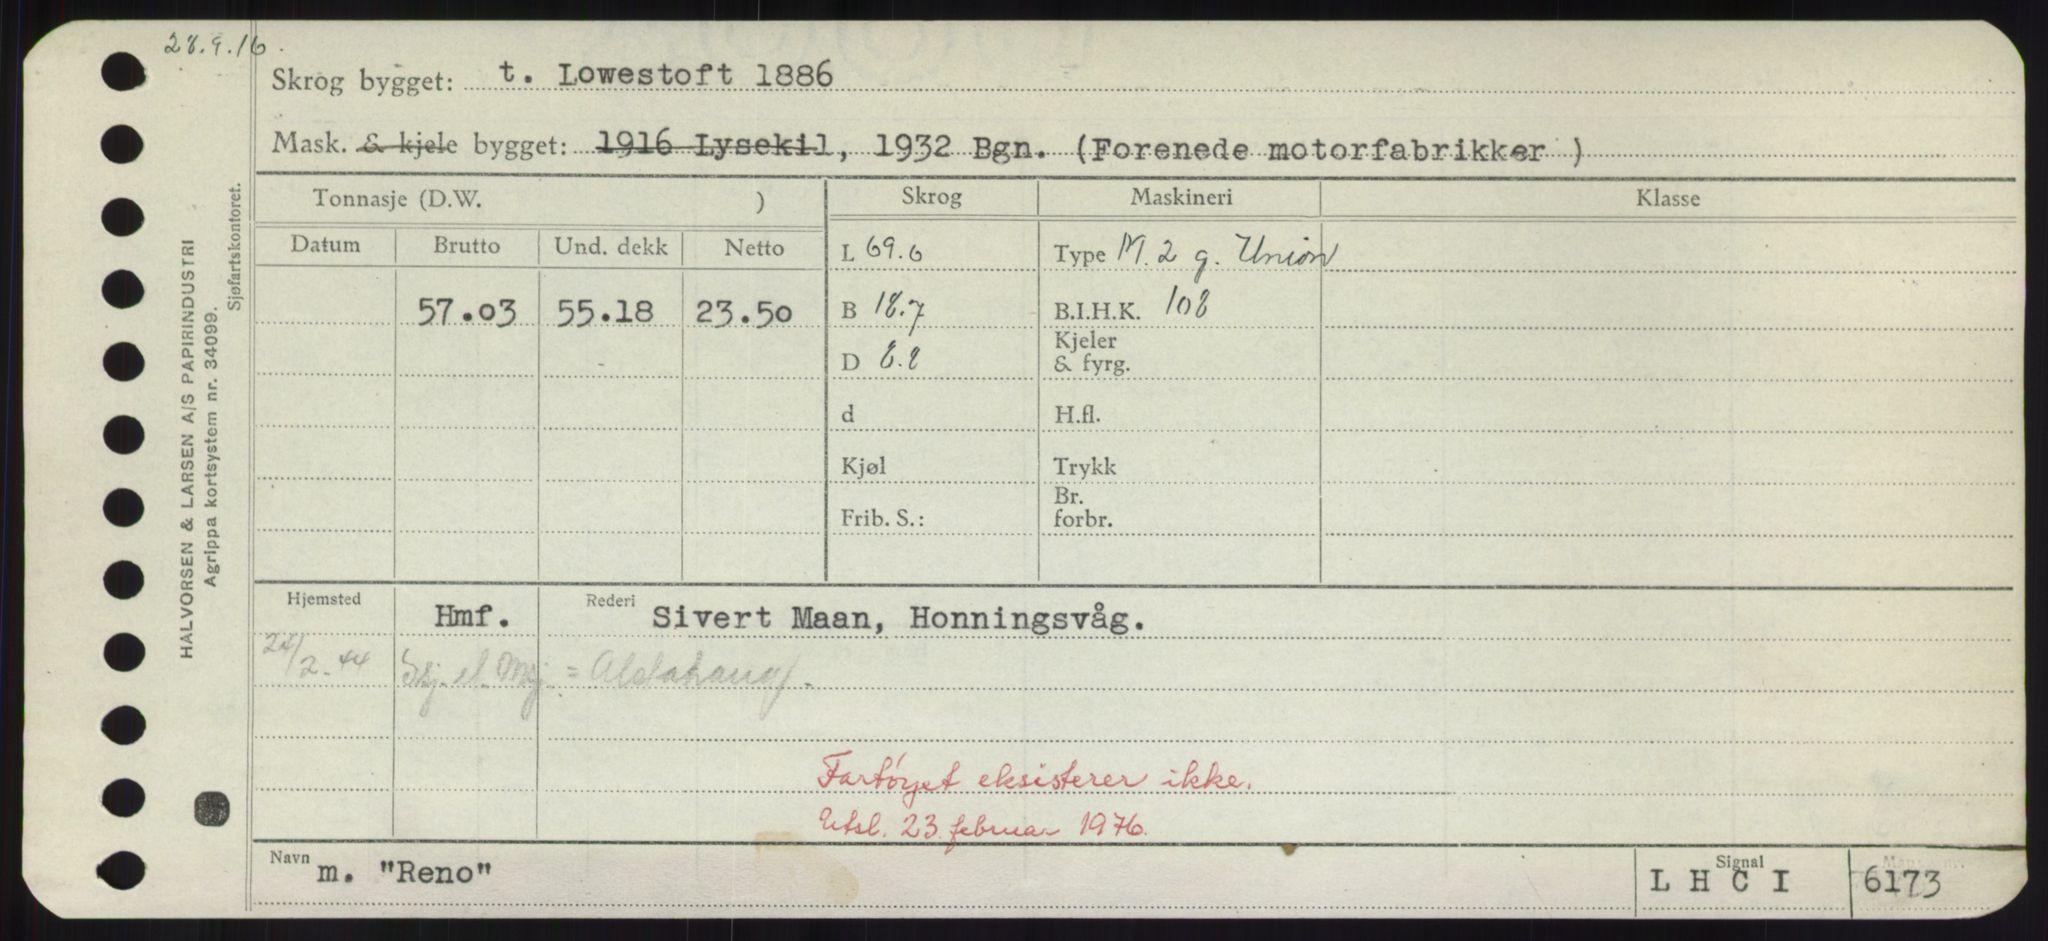 28.9.16.
Skrog bygget: t. Lowestoft 1886
Mask. & kjele bygget: 1916 Lysekil, 1932 Bgn. (Forenede motorfabrikker )
Tonnasje (D.W. ) Skrog Maskineri Klasse
Datum Brutto Und. dekk Netto L 69.6 Type M. 2 g. Union
57.03 55.18 23.50 B 18.7 B.I.H.K. 108
D 8.8 Kjeler & fyrg.
d H.fl.
Kjøl Trykk
Frib. S.: Br. forbr.
Hjemsted Hmf. Rederi Sivert Maan, Honningsvåg.
24/2.44
Fartøyet eksisterer ikke.
Utsl. 23. februar 1976.
Navn m. "Reno" Signal L H C I 6173
HALVORSEN & LARSEN A/S PAPIRINDUSTRI
Agrippa kortsystem nr. 34099.
Sjøfartskontoret.